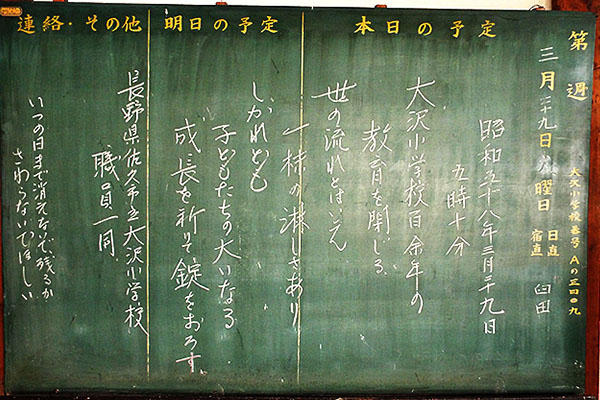 第 週
大沢小学校番号 Aの三四〇九
三月二十九日 火曜日 日直 宿直 臼田
本日の予定
昭和五十八年三月二十九日
五時十分
大沢小学校百余年の
教育を閉じる
世の流れとはいえ
一抹の淋しさあり
明日の予定
しかれども
子どもたちの大いなる
成長を祈って錠をおろす。
連絡・その他
長野県佐久市立大沢小学校
職員一同
いつの日まで消えないで残るか
さわらないでほしい